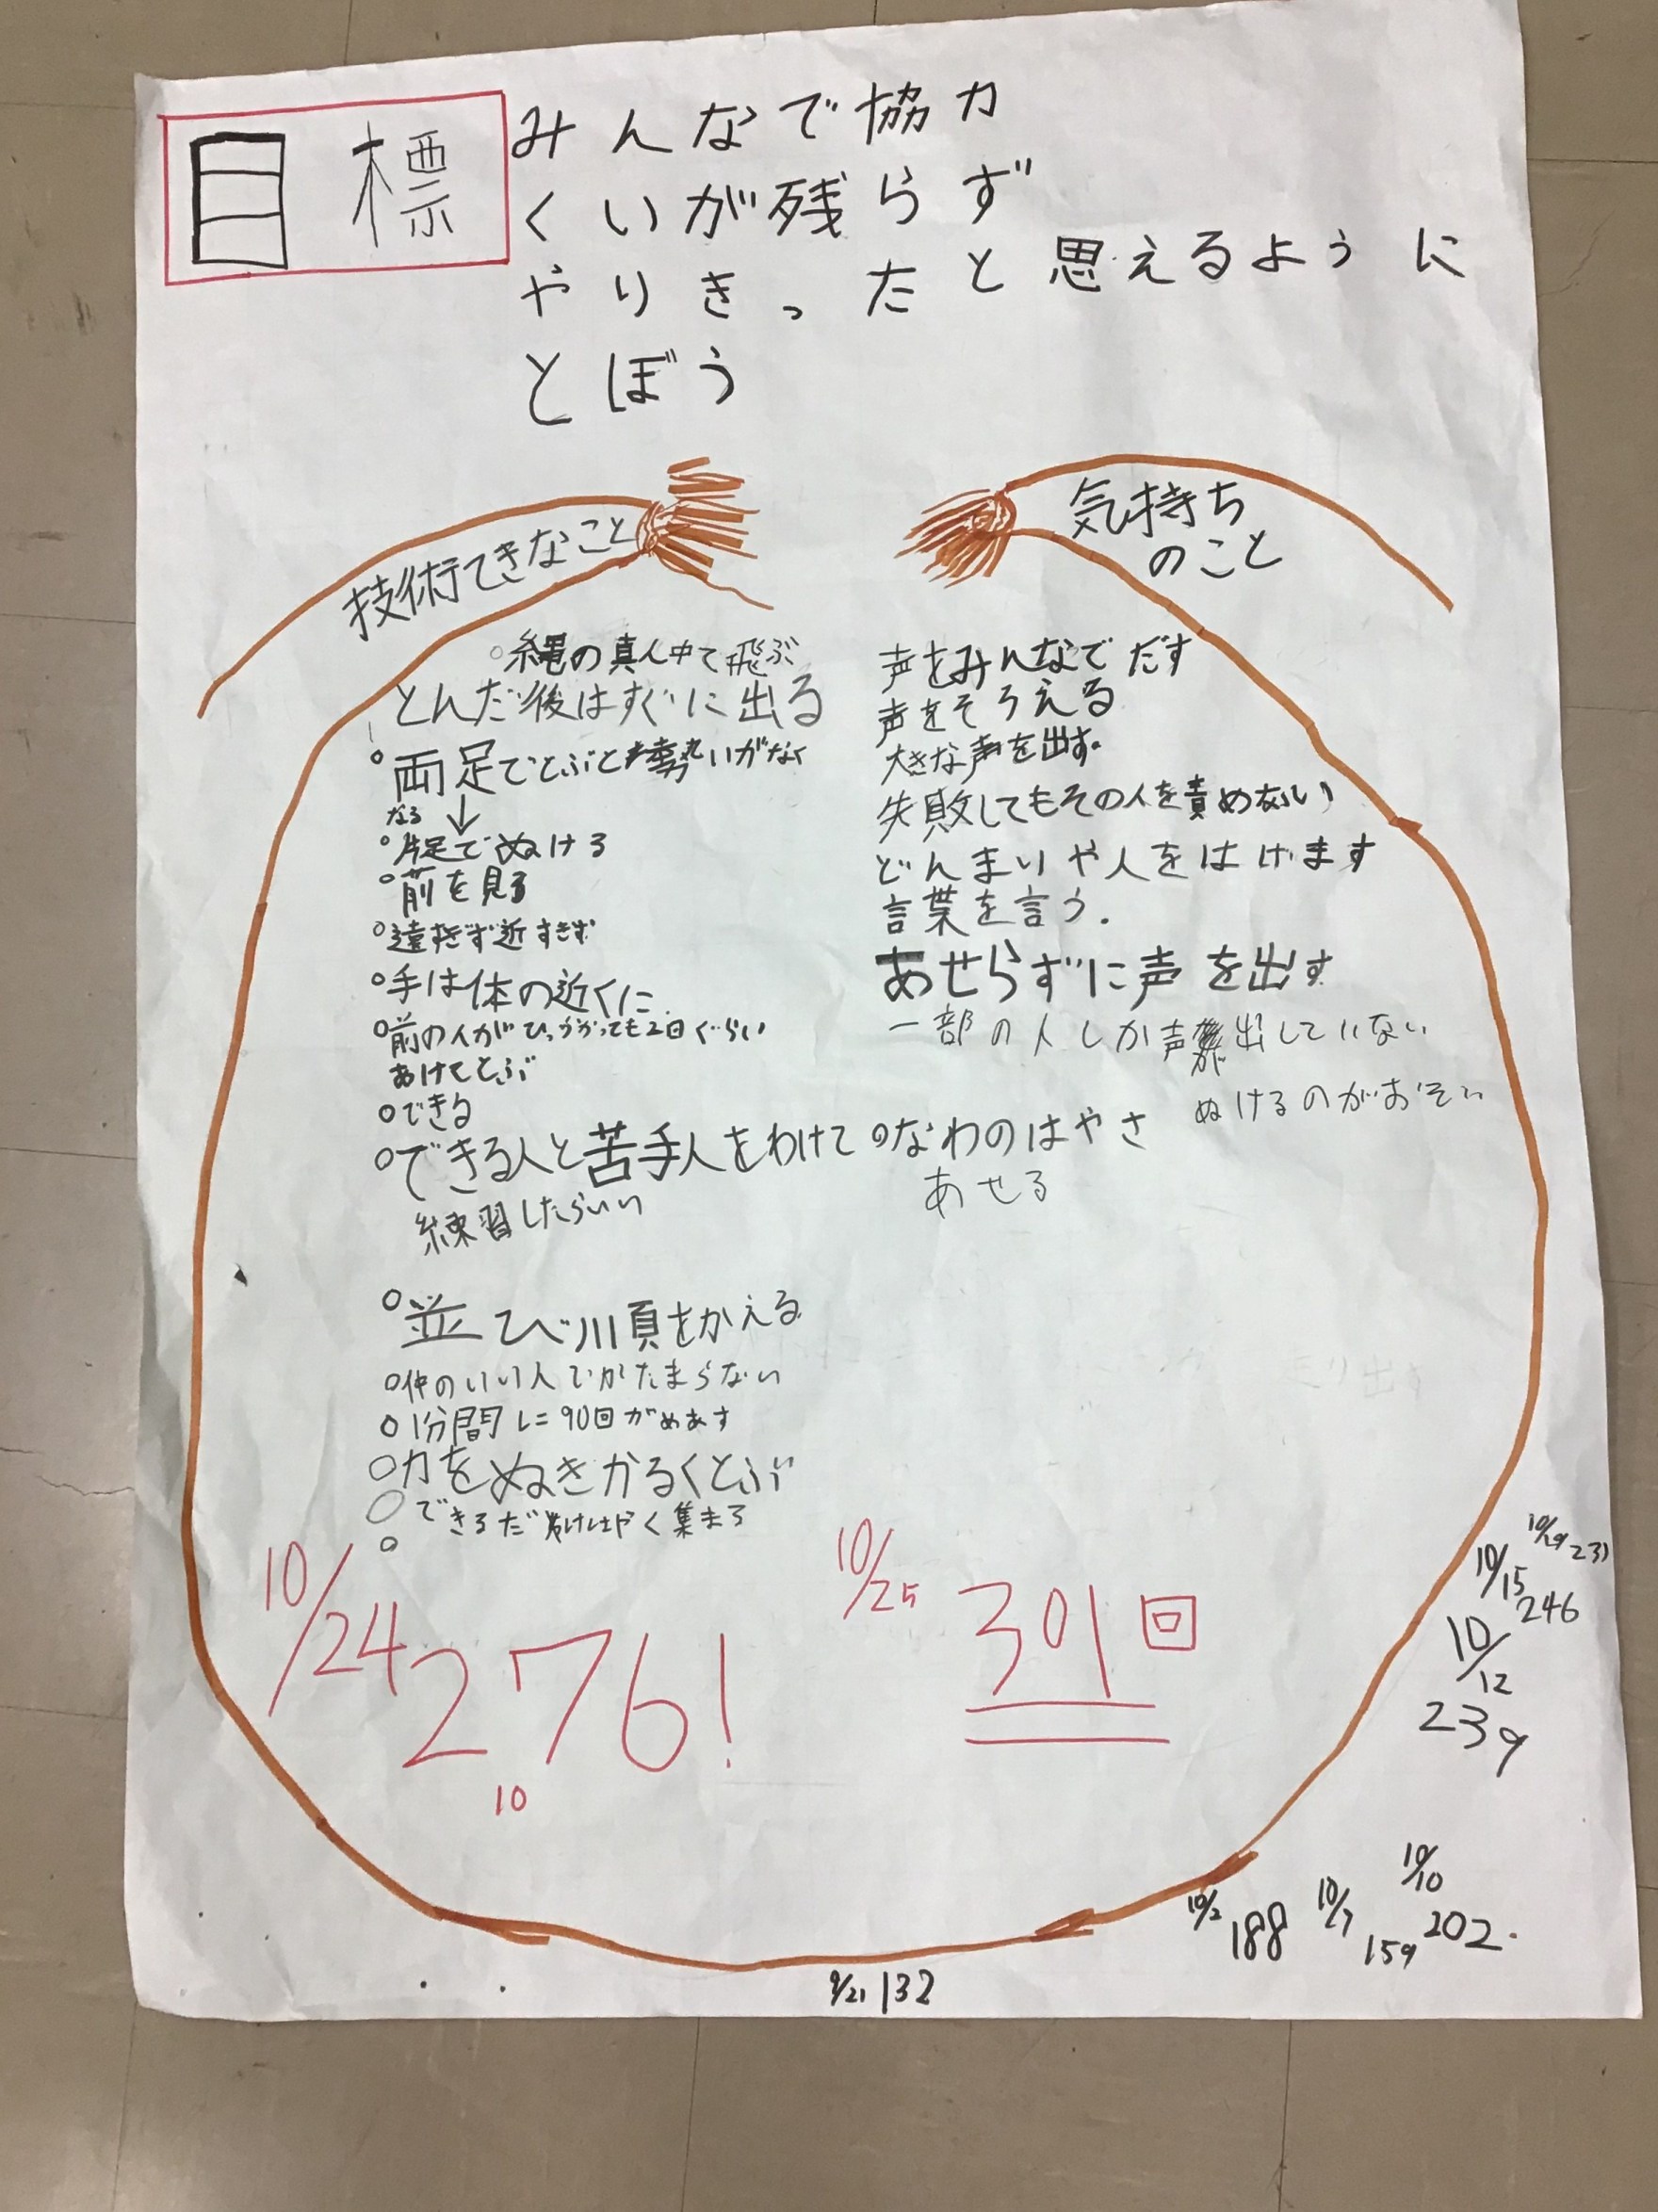 目標
みんなで協力
くいが残らず
やりきったと思えるように
とぼう
技術てきなこと
○縄の真ん中で飛ぶ
とんだ後はすぐに出る
○両足でとぶと勢いがなく
なる↓
○片足でぬける
○前を見る
○遠すぎず近すぎず
○手は体の近くに
○前の人がひっかかっても2回ぐらい
あけてとぶ
○できる
○できる人と苦手人をわけて
練習したらいい
○並び順をかえる
○仲のいい人でかたまらない
○1分間に90回がめあす
○力をぬきかるくとぶ
○できるだけはやく集まろ
○
気持ち
のこと
声をみんなでだす
声をそろえる
大きな声を出す。
失敗してもその人を責めない
どんまいや人をはげます
言葉を言う.
あせらずに声を出す
一部の人しか声出していない
ぬけるのがおそい
○なわのはやさ
あせる
10/24 276!
10
10/25 301回
9/21 132
10/2 188
10/7 159
10/10 202.
10/12 239
10/15 246
231